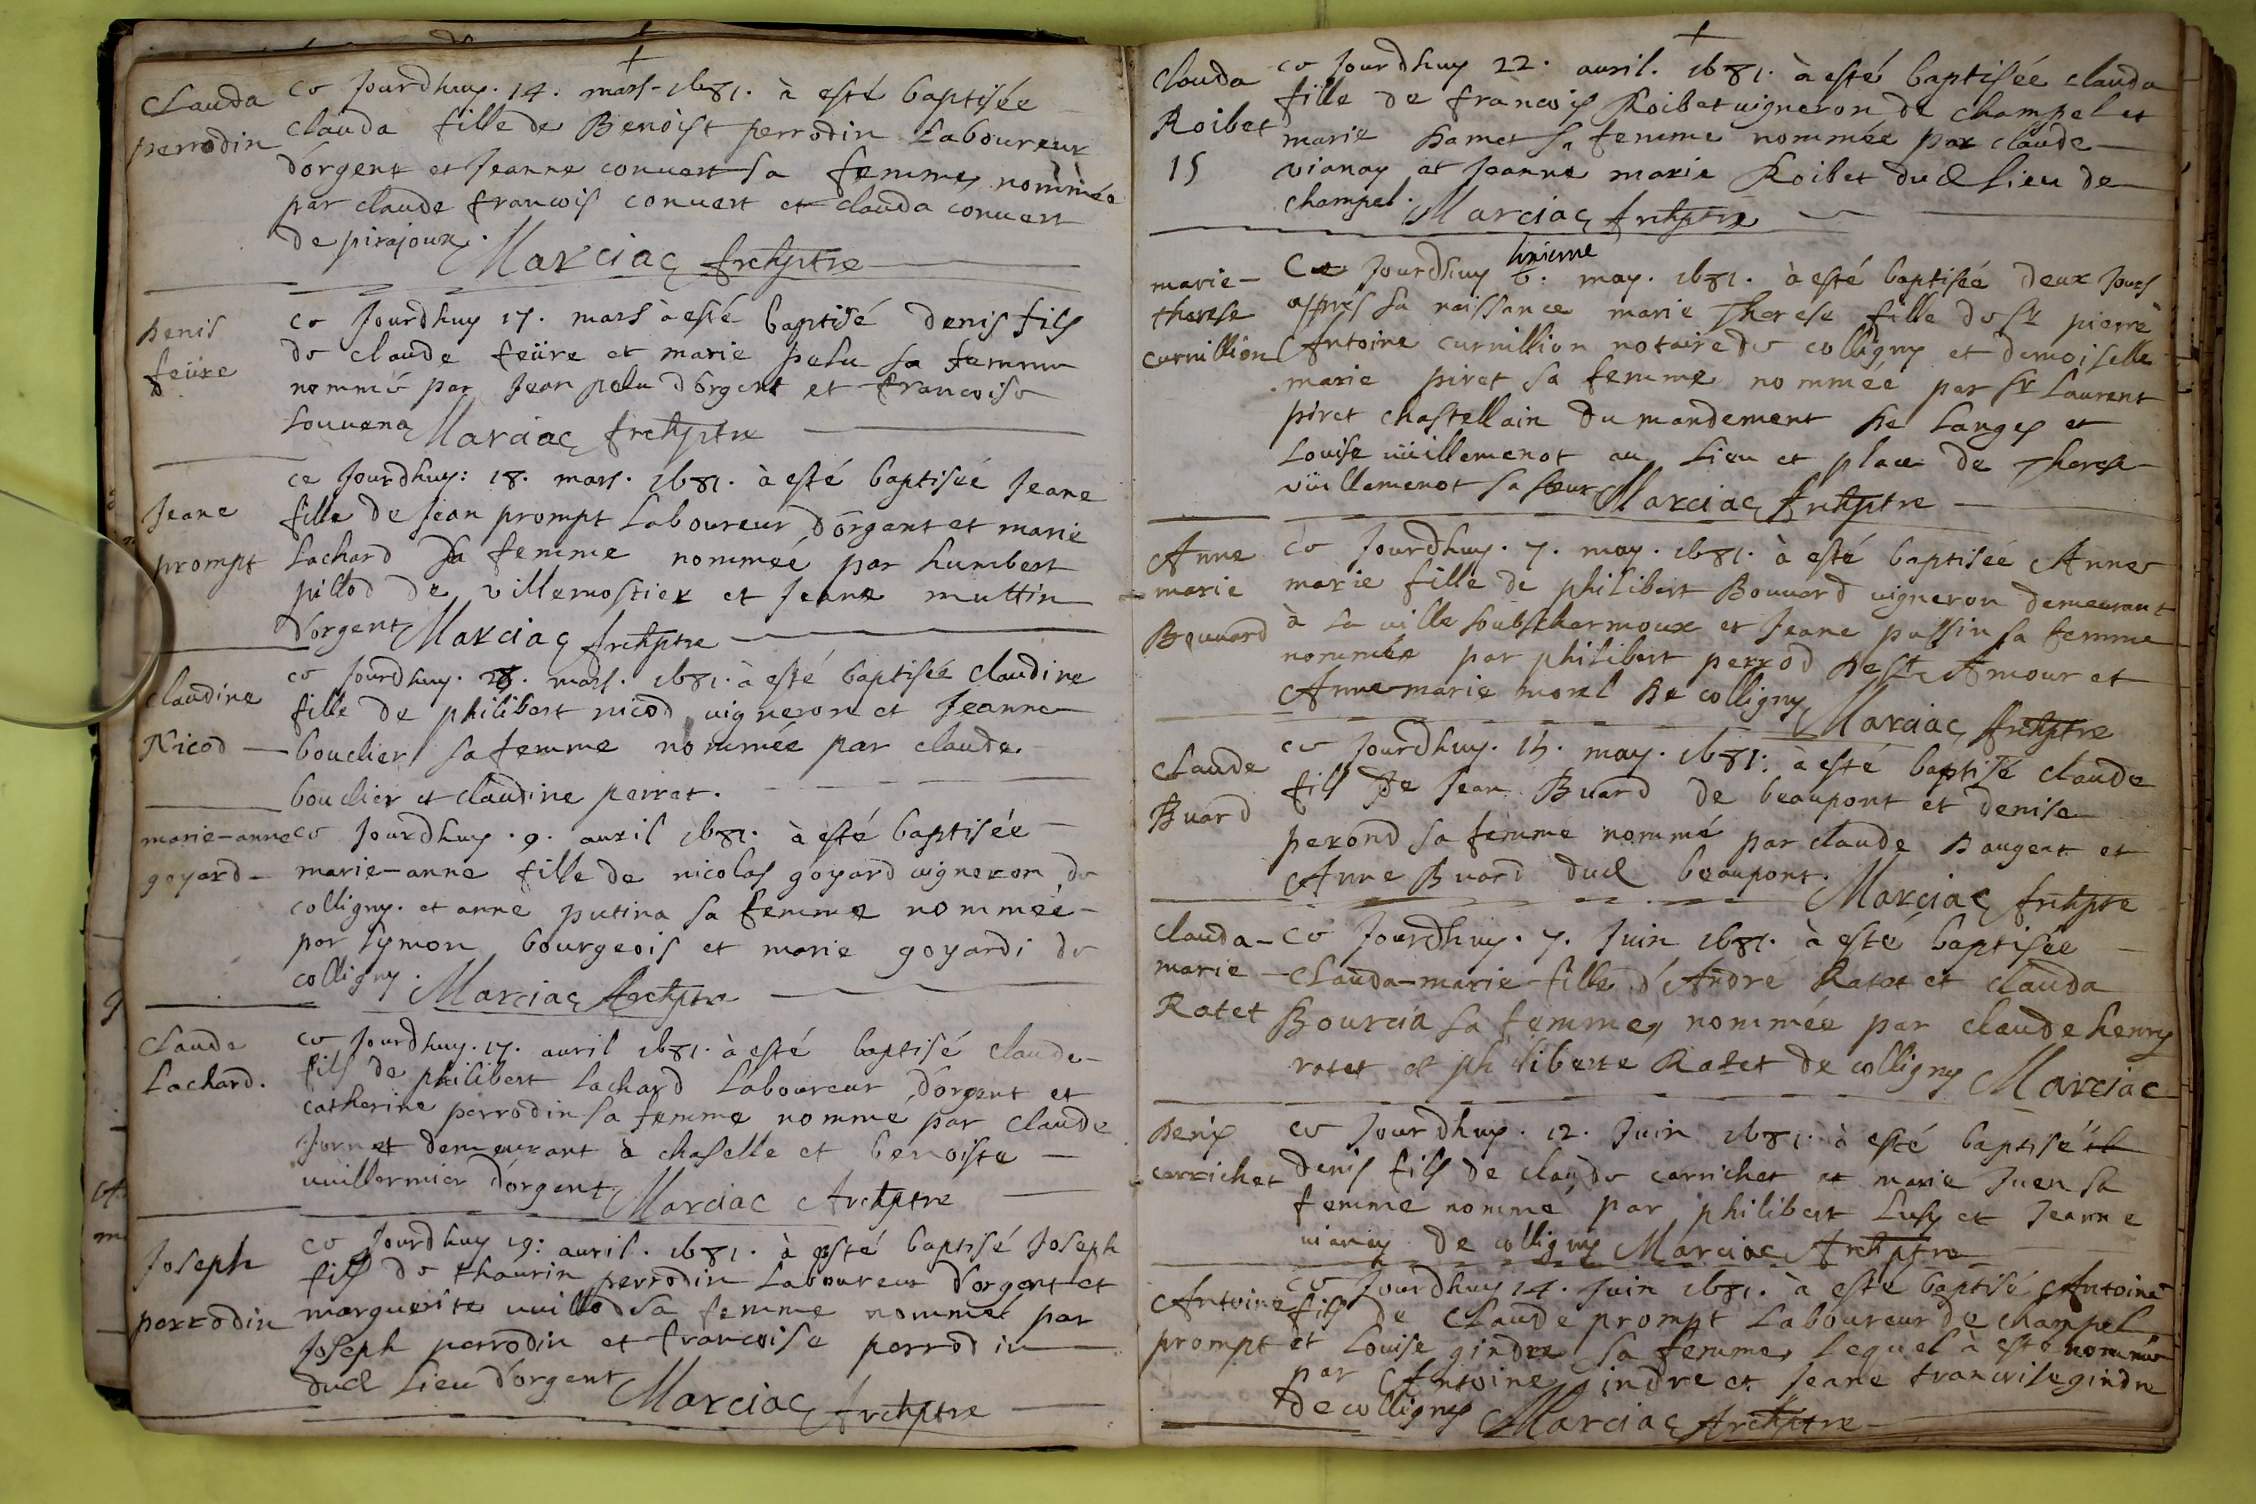 Clauda
perrodin
ce Jourdhuy. 14. mars. 1681. à esté baptisée
clauda fille de Benoist perrodin Laboureur
d'orgent et Jeanne convert sa femme nommée
par claude francois convert et clauda convert
de pirajoux. Marciac Archptre
Denis
feüre
ce Jourdhuy 17. mars à esté baptisé denis fils
de claude feüre et marie pelu sa femme
nommé par Jean pelu d'orgent et francoise
Louvena Marciac Archptre
Jeane
prompt
ce Jourdhuy: 18. mars. 1681. à esté baptisée Jeane
fille de Jean prompt Laboureur d'orgent et marie
Lachard sa femme nommée par humbert
pillod de villemostier et Jeane muttin
d'orgent Marciac Archptre
Claudine
Nicod
ce Jourdhuy. 28. mars. 1681. à esté baptisée claudine
fille de philibert nicod vigneron et Jeanne
bouclier sa femme nommée par claude
bouclier et claudine perret.
marie-anne
goyard
ce Jourdhuy. 9. auril 1681. à esté baptisée
marie-anne fille de nicolas goyard vigneron de
colligny. et anne putina sa femme nommée
par symon bourgeois et marie goyardi de
colligny. Marciac Archptre
Claude
Lachard.
ce Jourdhuy. 17. auril 1681. à esté baptisé claude
fils de philibert Lachard Laboureur d'orgent et
catherine perrodin sa femme nomme par claude
Jornet demeurant à chaselle et benoiste
vuillermier d'orgent Marciac Archptre
Joseph
perrodin
ce Jourdhuy 19: auril. 1681. à esté baptisé Joseph
fils de thaurin perrodin Laboureur d'orgent et
marguerite vuillod sa femme nommé par
Joseph perrodin et francoise perrodin
dud Lieu d'orgent Marciac Archptre
Clauda
Roibet
15
ce Jourdhuy 22. auril. 1681. à esté baptisée clauda
fille de francois Roibet vigneron de champel et
marie hamet sa femme nommée par claude
vianay et Jeanne marie Roibet dud Lieu de
champel. Marciac Archptre
marie-
therese
curnillion
Ce Jourdhuy may. 1681. à esté baptisée deux Jours
apprés sa naissance marie Therese fille de sr pierre
Antoine curnillion notaire de colligny et demoiselle
marie piret sa femme nommée par sr Laurent
piret chastellain du mandement de Langes et
Louise vüillemenot au Lieu et place de Therese
vüillemenot sa sœur Marciac Archptre
Anne
marie
Bouuard
Ce Jourdhuy. 7. may. 1681. à esté baptisée Anne
marie fille de philibert Bouuard vigneron demeurant
à La ville soubs charmoux et Jeane pussin sa femme
nommée par philibert perrod de st Amour et
Anne-marie morel de colligny Marciac Archptre
Claude
Buard
ce Jourdhuy. 15. may. 1681: à esté baptisé claude
fils de Jean Buard de beaupont et denise
perond sa femme nommé par claude Baugert et
Anne Buard dud beaupont. Marciac Archptre
Clauda-
marie
Ratet
Ce Jourdhuy. 7. Juin 1681. à esté baptisée
Clauda-marie fille d'André Ratet et clauda
Bourcia sa femme, nommée par claude henry
ratet et philiberte Ratet de colligny Marciac
Denis
carrichet
ce Jourdhuy. 12. Juin 1681. à esté baptisé
denis fils de claude carrichet et marie Juen sa
femme nommé par philibert Lusy et Jeanne
vianay de colligny Marciac Archptre
Antoine
prompt
ce Jourdhuy 14. Juin 1681. à esté baptisé Antoine
fils de Claude prompt Laboureur de champel
et Louise gindre sa femme, Lequel à esté nommé
par Antoine gindre et Jeane francoise gindre
de colligny Marciac Archptre